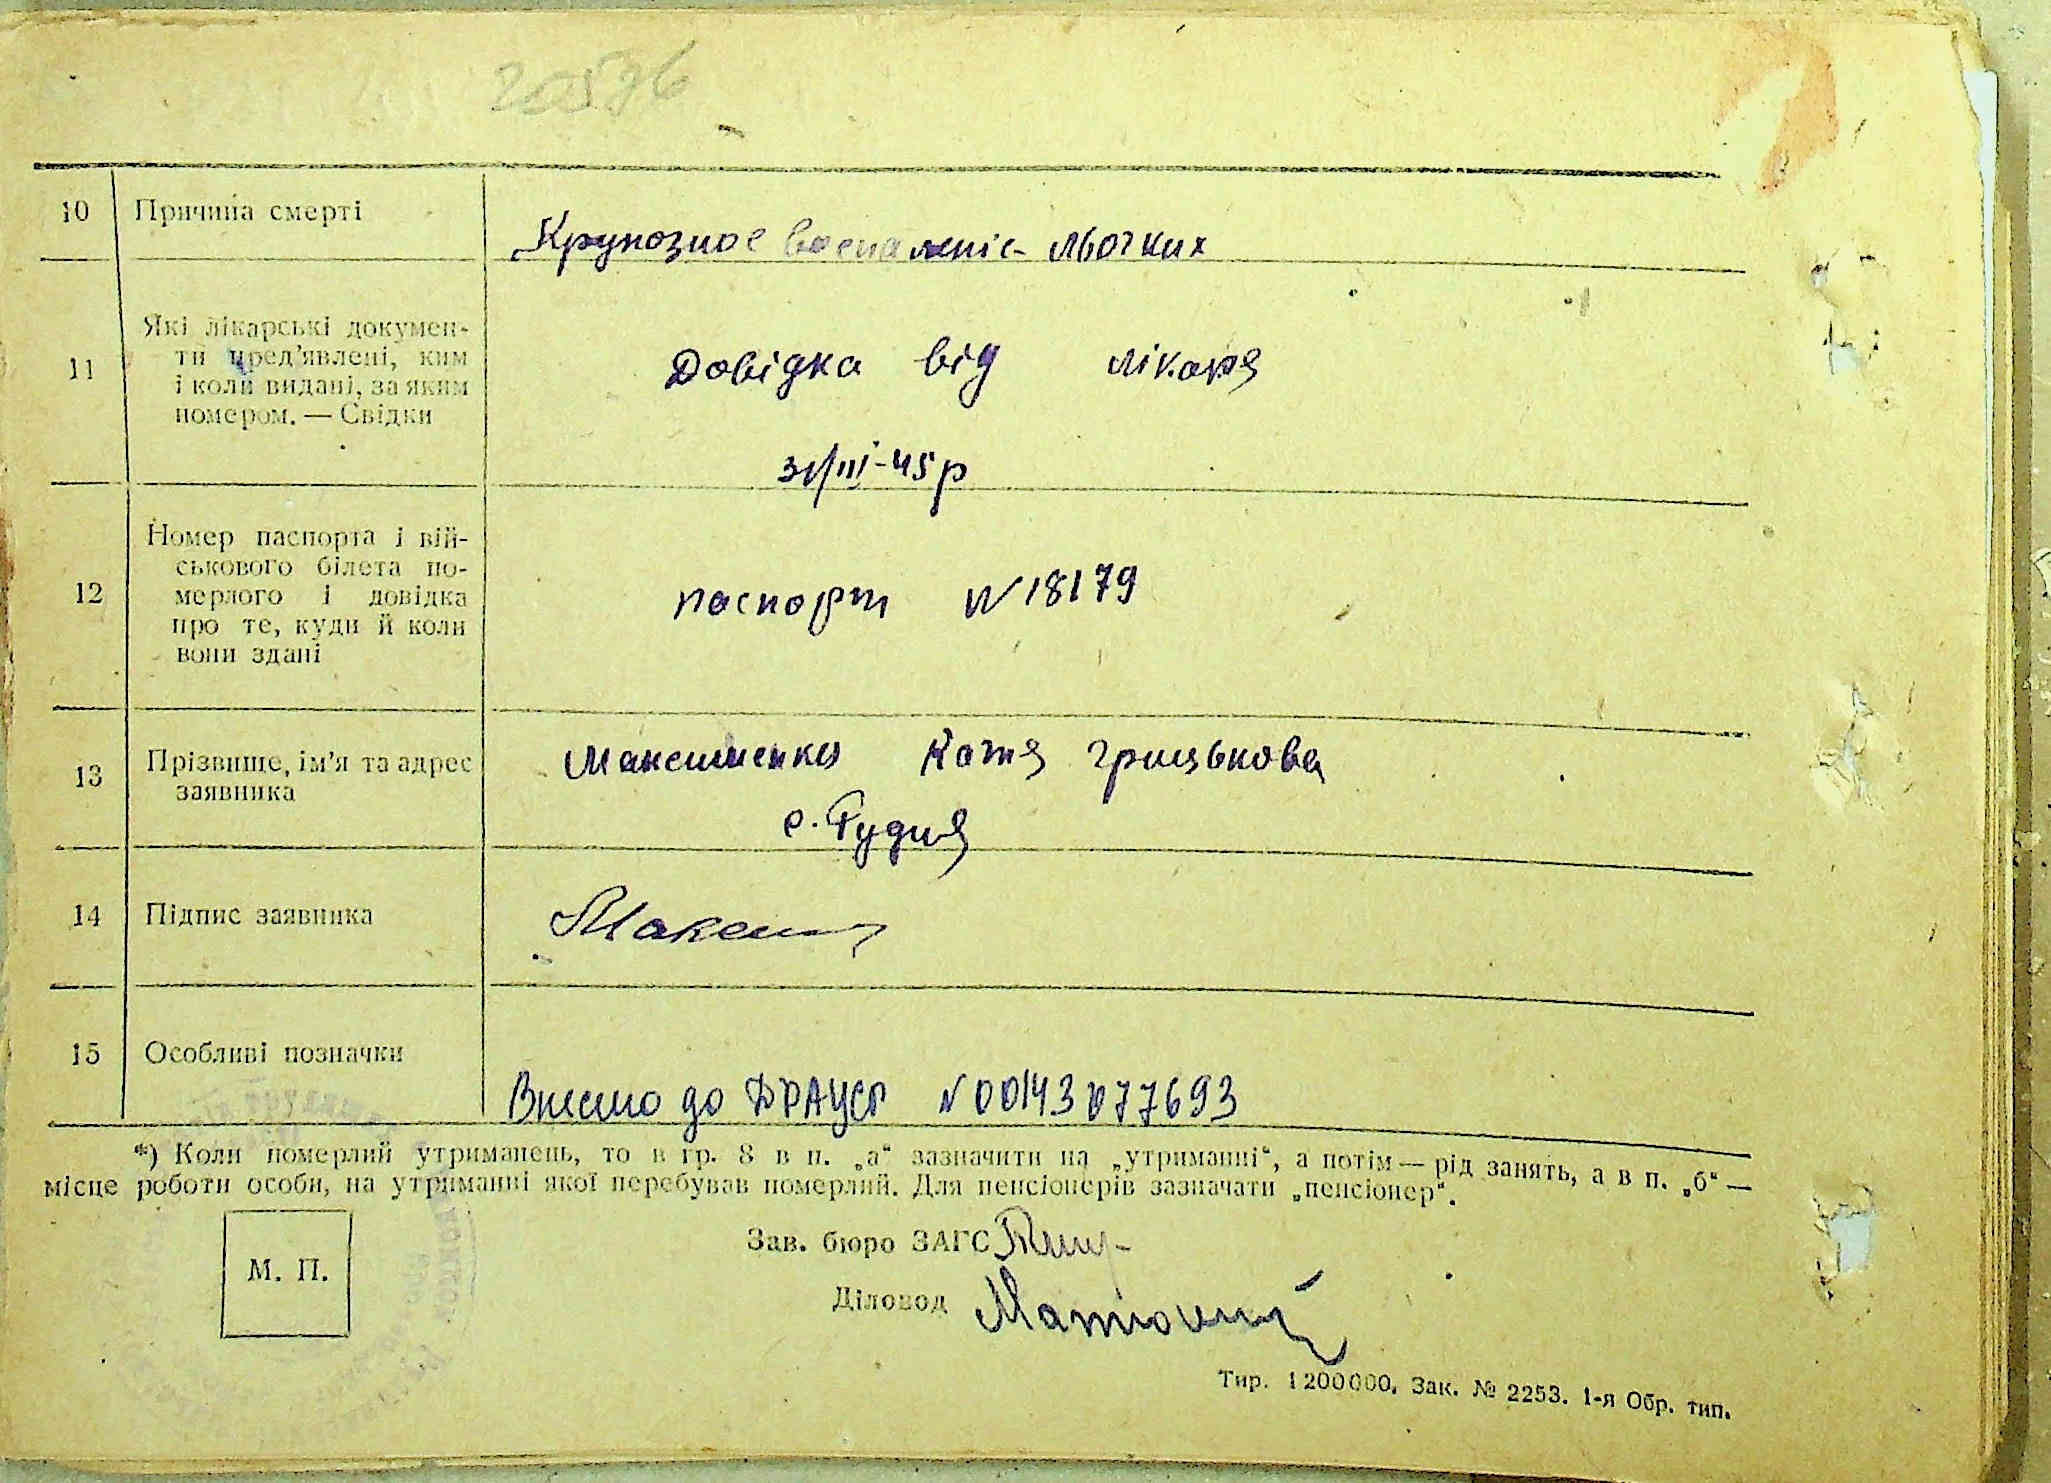 20596
10 Причина смерті Крупозное воспаленіє льочких
11 Які лікарські докумен-
ти пред'явлені, ким
і коли видані, за яким
номером. — Свідки
Довідка від лікаря
31/III-45р
12 Номер паспорта і вій-
ськового білета по-
мерлого і довідка
про те, куди й коли
вони здані
паспорт N 18179
13 Прізвище, ім'я та адрес
заявника
Максименко Катя Грицькова
с. Рудня
14 Підпис заявника Максим
15 Особливі позначки
Внесено до ДРАЦСГ N 00143077693
*) Коли померлий утриманець, то в гр. 8 в п. „а“ зазначити на „утриманні“, а потім — рід занять, а в п. „б“ —
місце роботи особи, на утриманні якої перебував померлий. Для пенсіонерів зазначати „пенсіонер“.
Зав. бюро ЗАГС
М. П.
Діловод
Тир. 1200000. Зак. № 2253. 1-я Обр. тип.